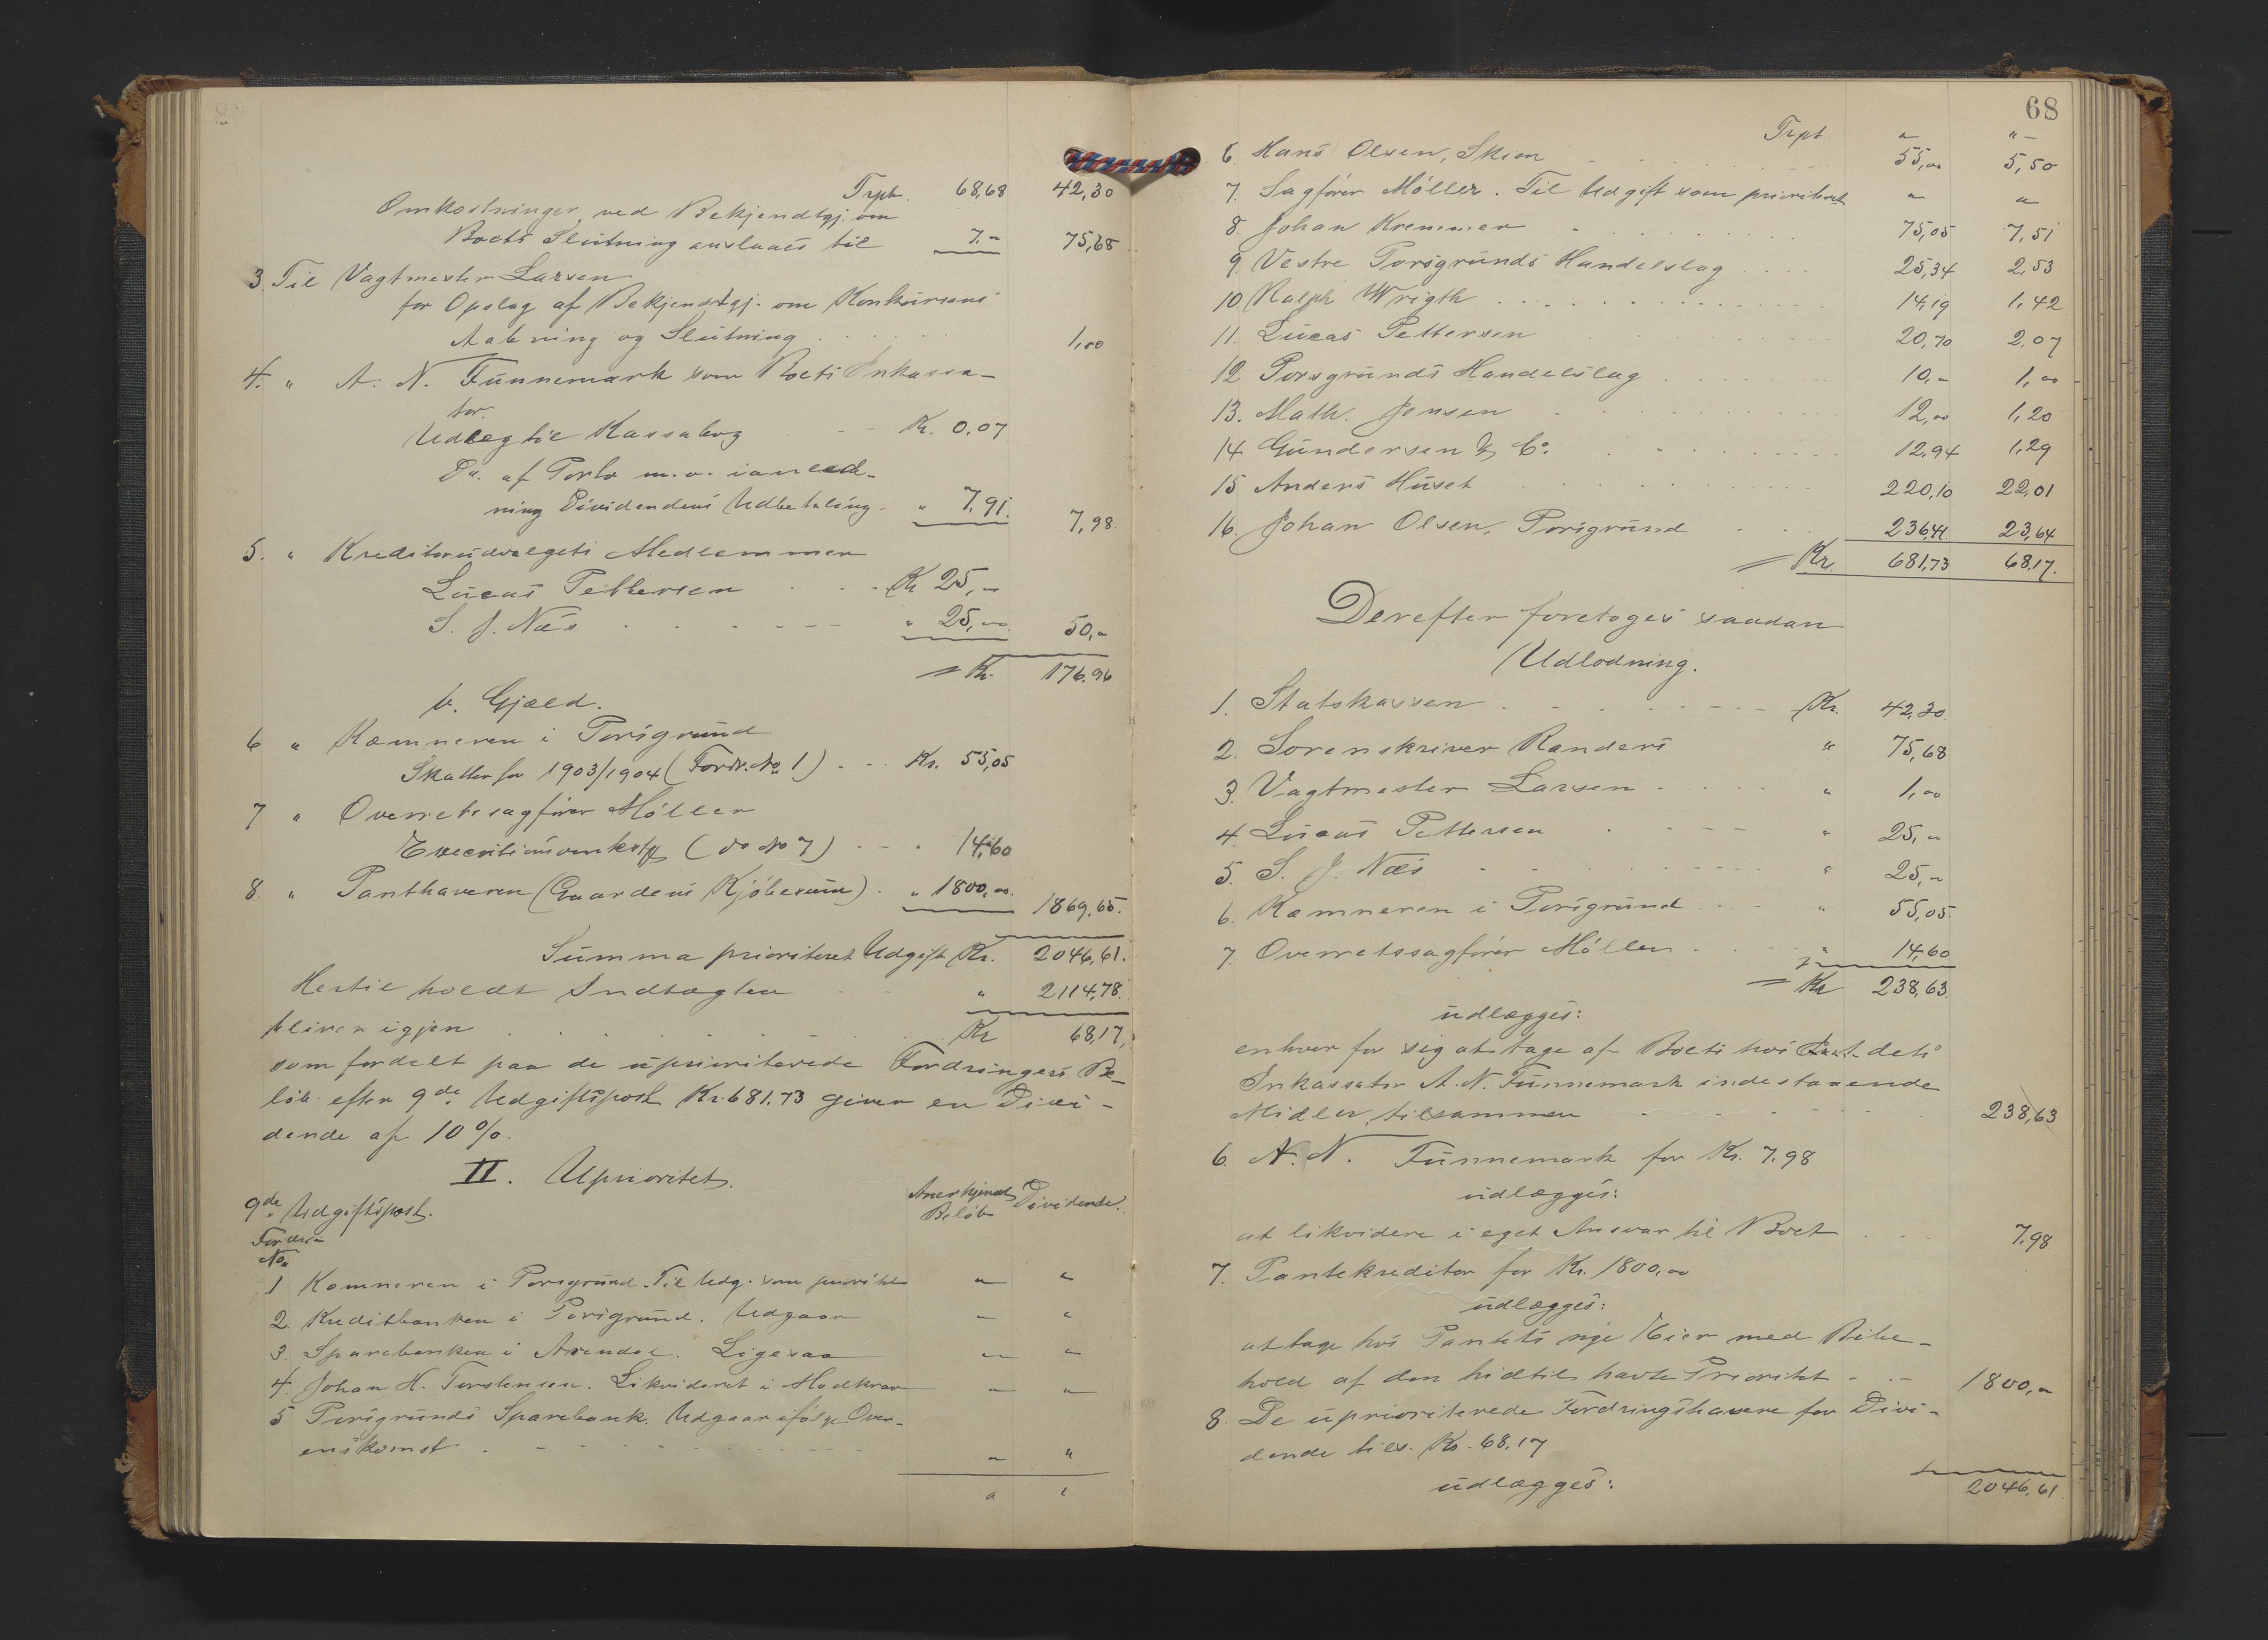 Trpt. 68,68 42,30
Omkostninger ved Bekjendtgj. om
Boets Slutning anslaaes til 7.- 75,68
3. Til Vagtmester Larsen
for Opslag af Bekjendtgj. om Konkursens
Aabning og Slutning 1,00
4. " A. N. Funnemark som Boets Inkassa-
tor.
Udlæg til Kassabog Kr. 0,07
Do. af Porto m.v. i anled-
ning Dividendens Udbetaling " 7,91. 7,98.
5. " Kreditorudvalgets Medlemmer
Lucas Pettersen Kr 25,-
S. J. Næs " 25,00 50,-
= Kr. 176.96
b. Gjæld.
6 " Kæmneren i Porsgrund
Skatter for 1903/1904 (Fordr. No 1) Kr. 55,05
7 " Overretssagfører Møller
Executionsomkstg (do No 7) 14,60
8. " Panthaveren (Gaardens Kjøbesum) " 1800,00 1869,65.
Summa prioriteret Udgift Kr. 2046,61.
Hertil holdt Indtægten " 2114,78.
bliver igjen Kr 68,17,
som fordelt paa de uprioriterede Fordringers Be-
løb efter 9de Udgiftspost Kr. 681.73 giver en Divi-
dende af 10%.
II. Uprioritet.
9de Udgiftspost. Anerkjendt Beløb Dividende.
Fordr.
No.
1 Kæmneren i Porsgrund. Til Udg. som prioritet " "
2. Kreditbanken i Porsgrund. Udgaar " "
3. Sparebanken i Arendal. Ligesaa " "
4. Johan H. Torstensen. Likvideret i Modkrav " "
5 Porsgrunds Sparebank. Udgaar ifølge Over-
enskomst " "
" "
68
Trpt. " "
6. Hans Olsen, Skien 55,00 5,50
7. Sagfører Møller. Til Udgift som prioriteret " "
8. Johan Kremmer 75,05 7,51
9. Vestre Porsgrunds Handelslag 25,34 2,53
10. Ralph Wrigth 14,19 1,42
11. Lucas Pettersen 20,70 2,07
12 Porsgrunds Handelslag 10,- 1,00
13. Math. Jensen 12,00 1,20
14 Gundersen & Co. 12,94 1,29
15 Anders Huset 220,10 22,01
16. Johan Olsen, Porsgrund 236,41. 23,64
= Kr. 681,73 68,17.
Derefter foretoges saadan
Udlodning.
1. Statskassen Kr. 42,30.
2. Sorenskriver Randers " 75,68
3. Vagtmester Larsen " 1,00
4. Lucas Pettersen " 25,-
5. S. J. Næs " 25,-
6. Kæmneren i Porsgrund " 55,05.
7. Overretssagfører Møller " 14,60
= Kr 238,63.
udlægges:
enhver for sig at tage af Boets hos dets
Inkassator A. N. Funnemark indestaaende
Midler, tilsammen 238,63
6. A. N. Funnemark for Kr. 7.98
udlægges:
at likvidere i eget Ansvar til Boet 7,98
7. Pantekreditor for Kr. 1800,00
udlægges:
at tage hos Pantets nye Eier med Bibe-
hold af den hidtil havte Prioritet 1800,-
8. De uprioriterede Fordringshavere for Divi-
dende tils. Kr. 68.17
udlægges:
2046,61.